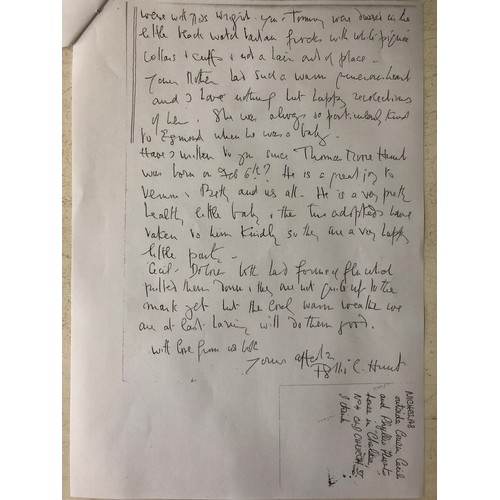 were with Miss Wright. You & Tommy were dressed in the
little black watch tartan frocks with white piqué
collars & cuffs & not a hair out of place -
Your Mother had such a warm generous heart
and I have nothing but happy recollections
of her. She was always so particularly kind
to Egmond when he was a baby.
Have I written to you since Thomas More Hunt
was born on Feb 6th? He is a great joy to
& Betty and us all. He is a very pretty
healthy little baby & the two adopteds have
taken to him kindly so they are a very happy
little party -
Cecil & both had forms of flu which
pulled them down & they are not quite up to the
mark yet but the lovely warm weather we
are at last having will do them good.
with love from us both
Yours affect.
Phyllis C. Hunt
NICHOLAS
outside Cousin Cecil
and Phyllis Hunt's
house in Chelsea,
No 4 OLD CHURCH ST
I think